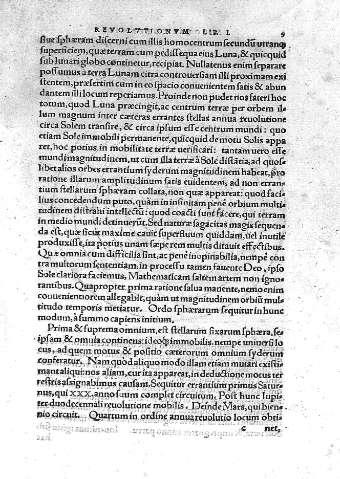 REVOLVTIONVM LIB. I. 9
siue sphæram discerni cum illis homocentrum secundũ utranq̃
superficiem, quæ terram cum pedissequa eius Luna, & quicquid
sub lunari globo continetur, recipiat. Nullatenus enim separare
possumus à terra Lunam citra controuersiam illi proximam exi
stentem, præsertim cum in eo spacio conuenientem satis & abun
dantem illi locum reperiamus. Proinde non pudet nos fateri hoc
totum, quod Luna præcingit, ac centrum terræ per orbem il=
lum magnum inter cæteras errantes stellas annua reuolutione
circa Solem transire, & circa ipsum esse centrum mundi: quo
etiam Sole immobili permanente, quicquid de motu Solis appa
ret, hoc potius in mobilitate terræ uerificari: tantam uero esse
mundi magnitudinem, ut cum illa terræ à Sole distãtia, ad quos=
libet alios orbes errantium syderum magnitudinem habeat, ꝓ
ratione illarum amplitudinum satis euidentem, ad non erran=
tium stellarum sphæram collata, non quæ appareat: quod faci=
lius concedendum puto, quàm in infinitam penè orbium multi=
tudinem distrahi intellectũ: quod coacti sunt facere, qui terram
in medio mundi detinuerũt. Sed naturæ sagacitas magis sequen
da est, quæ sicut maxime cauit superfluum quiddam, uel inutile
produxisse, ita potius unam sæpe rem multis ditauit effectibus.
Quæ omnia cum difficilia sint, ac penè inopinabilia, nempe con
tra multorum sententiam, in processu tamen fauente Deo, ipso
Sole clariora faciemus, Mathematicam saltem artem non igno=
rantibus. Quapropter prima ratione salua manente, nemo enim
conuenientiorem allegabit, quàm ut magnitudinem orbiũ mul=
titudo temporis metiatur. Ordo sphærarum sequitur in hunc
modum, à summo capiens initium.
Prima & suprema omnium, est stellarum fixarum sphæra, se=
ipsam & omnia continens: ideoq̃ immobilis. nempe uniuersi lo
cus, ad quem motus & positio cæterorum omnium syderum
conferatur. Nam quod aliquo modo illam etiam mutari existi=
mant aliqui: nos aliam, cur ita appareat, in deductione motus ter
restris assignabimus causam. Sequitur errantium primus Satur=
nus, qui XXX. anno suum complet circuitum. Post hunc Iupi=
ter duodecennali reuolutione mobilis. Deinde Mars, qui bien=
nio circuit. Quartum in ordine annua reuolutio locum obti=
c net,